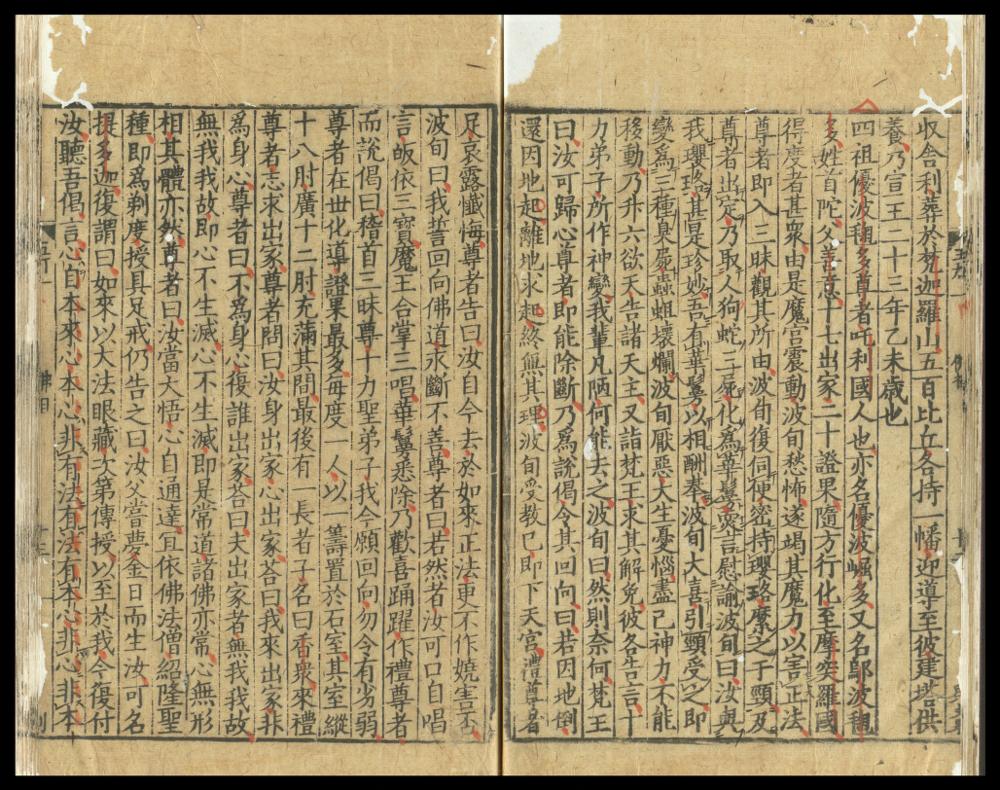 收舍利葬於梵迦羅山五百比丘各持一幡迎導至彼建塔供
養乃宣王二十三年乙未歲也
四祖優波毱多尊者吒利國人也亦名優波崛多又名鄔波毱
多姓首陀父善意十七出家二十證果隨方行化至摩突羅國
得度者甚衆由是魔宮震動波旬愁怖遂竭其魔力以害正法
尊者即入三昧觀其所由波旬復伺便密持瓔珞縻之于頸及
尊者出定乃取人狗蛇三屍化爲華鬘耎言慰諭波旬曰汝與
我瓔珞甚是珍妙吾有華鬘以相酬奉波旬大喜引頸受之即
變爲三種臭屍蟲蛆壞爛波旬厭惡大生憂惱盡己神力不能
移動乃升六欲天告諸天主又詣梵王求其解免彼各告言十
力弟子所作神變我輩凡陋何能去之波旬曰然則奈何梵王
曰汝可歸心尊者即能除斷乃爲說偈令其回向曰若因地倒
還因地起離地求起終無其理波旬受教已即下天宮禮尊者
足哀露懺悔尊者告曰汝自今去於如來正法更不作嬈害不
波旬曰我誓回向佛道求斷不善尊者曰若然者汝可口自唱
言皈依三寶魔王合掌三唱華鬘悉除乃歡喜踊躍作禮尊者
而說偈曰稽首三昧尊十力聖弟子我今願回向勿令有劣弱
尊者在世化導證果最多每度一人以一籌置於石室其室縱
十八肘廣十二肘充滿其間最後有一長者子名曰香衆來禮
尊者志求出家尊者問曰汝身出家心出家荅曰我來出家非
爲身心尊者曰不爲身心復誰出家荅曰夫出家者無我我故
無我我故即心不生滅心不生滅即是常道諸佛亦常心無形
相其體亦然尊者曰汝當大悟心自通達宜依佛法僧紹隆聖
種即爲剃度授具足戒仍告之曰汝父嘗夢金日而生汝可名
提多迦復謂曰如來以大法眼藏次第傳授以至於我今復付
汝聽吾偈言心自本來心本心非有法有法有本心非心非本